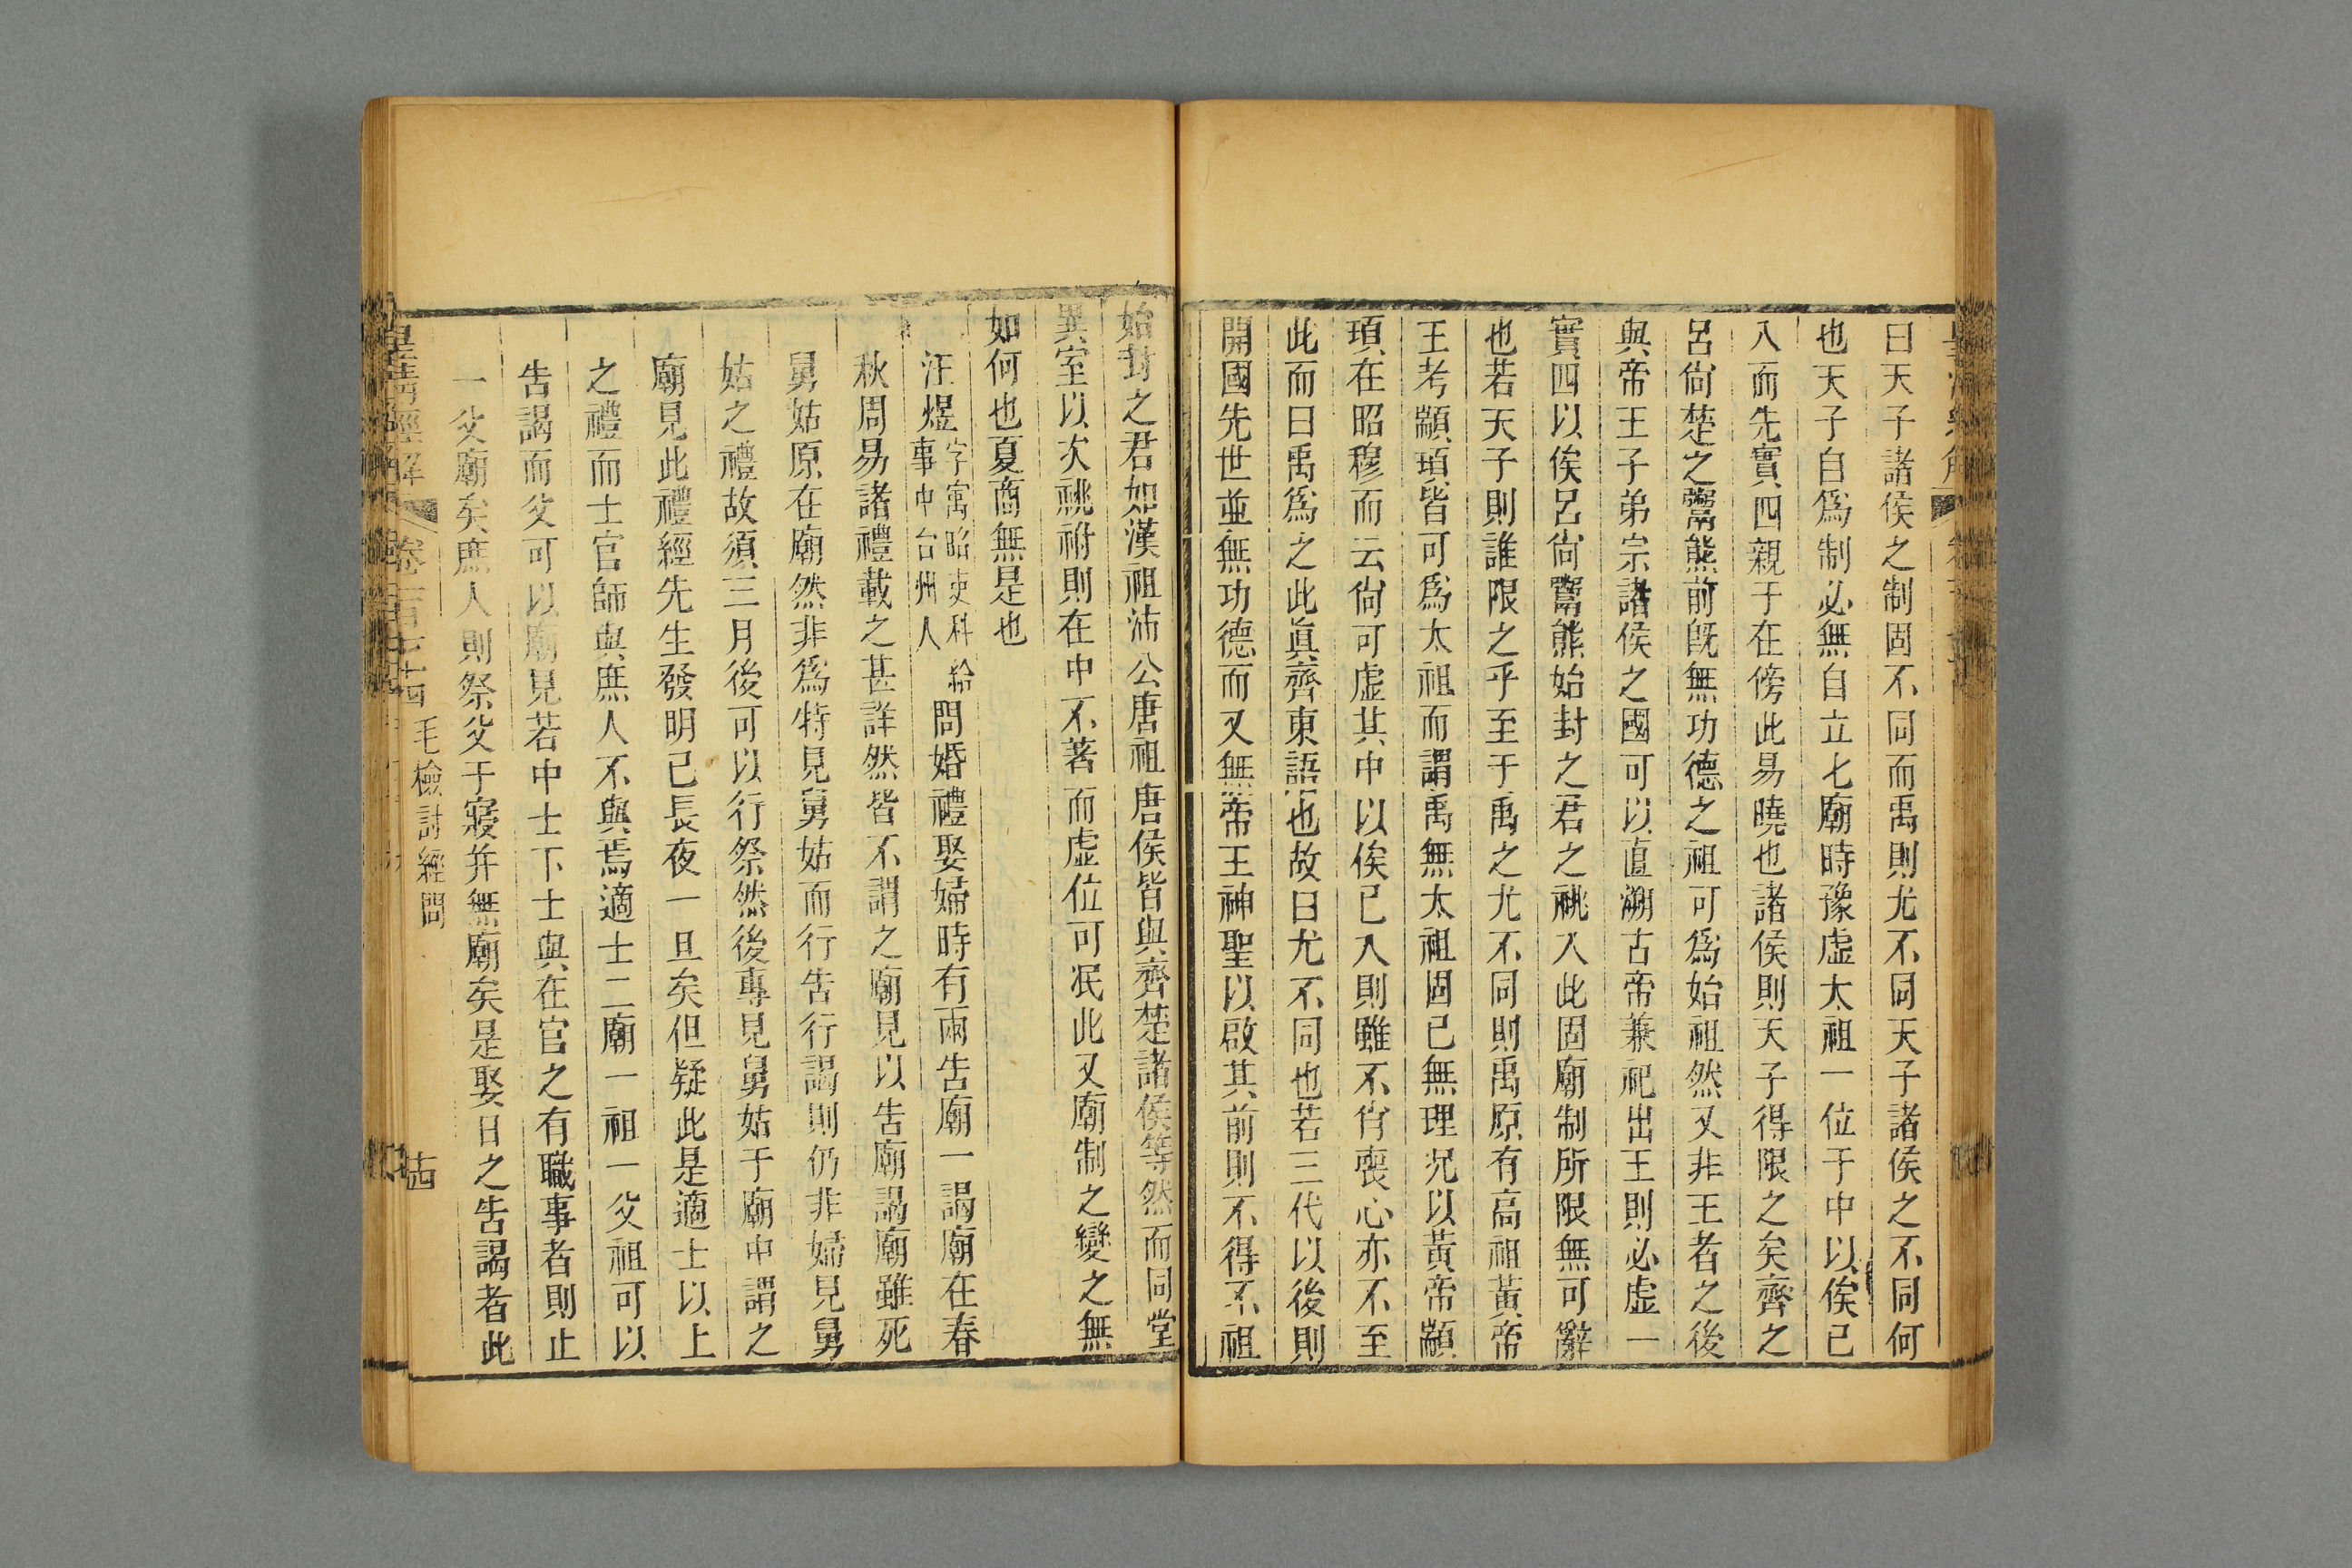 曰天子諸侯之制固不同而禹則尤不同天子諸侯之不同何
也天子自爲制必無自立七廟時豫虛太祖一位于中以俟已
入而先實四親于在傍此易曉也諸侯則天子得限之矣齊之
呂尙楚之鬻熊前旣無功德之祖可爲始祖然又非王者之後
與帝王子弟宗諸侯之國可以直溯古帝兼祀出王則必虛一
實四以俟呂尙鬻熊始封之君之祧入此固廟制所限無可辭
也若天子則誰限之乎至于禹之尤不同則禹原有高祖黃帝
王考顓頊皆可爲太祖而謂禹無太祖固已無理況以黃帝顓
頊在昭穆而云尙可虛其中以俟已入則雖不肖喪心亦不至
此而曰禹爲之此眞齊東語也故曰尤不同也若三代以後則
開國先世並無功德而又無帝王神聖以啟其前則不得不祖
始封之君如漢祖沛公唐祖唐侯皆與齊楚諸侯等然而同堂
異室以次祧祔則在中不著而虛位可泯此又廟制之變之無
如何也夏商無是也
汪煜字寓昭吏科給事中台州人問婚禮娶婦時有兩告廟一謁廟在春
秋周易諸禮載之甚詳然皆不謂之廟見以告廟謁廟雖死
舅姑原在廟然非爲特見舅姑而行告行謁則仍非婦見舅
姑之禮故須三月後可以行祭然後專見舅姑于廟中謂之
廟見此禮經先生發明已長夜一旦矣但疑此是適士以上
之禮而士官師與庶人不與焉適士二廟一祖一父祖可以
告謁而父可以廟見若中士下士與在官之有職事者則止
一父廟矣庶人則祭父于寢并無廟矣是娶日之告謁者此
皇淸經解 卷一百七十四 毛檢討經問 十四